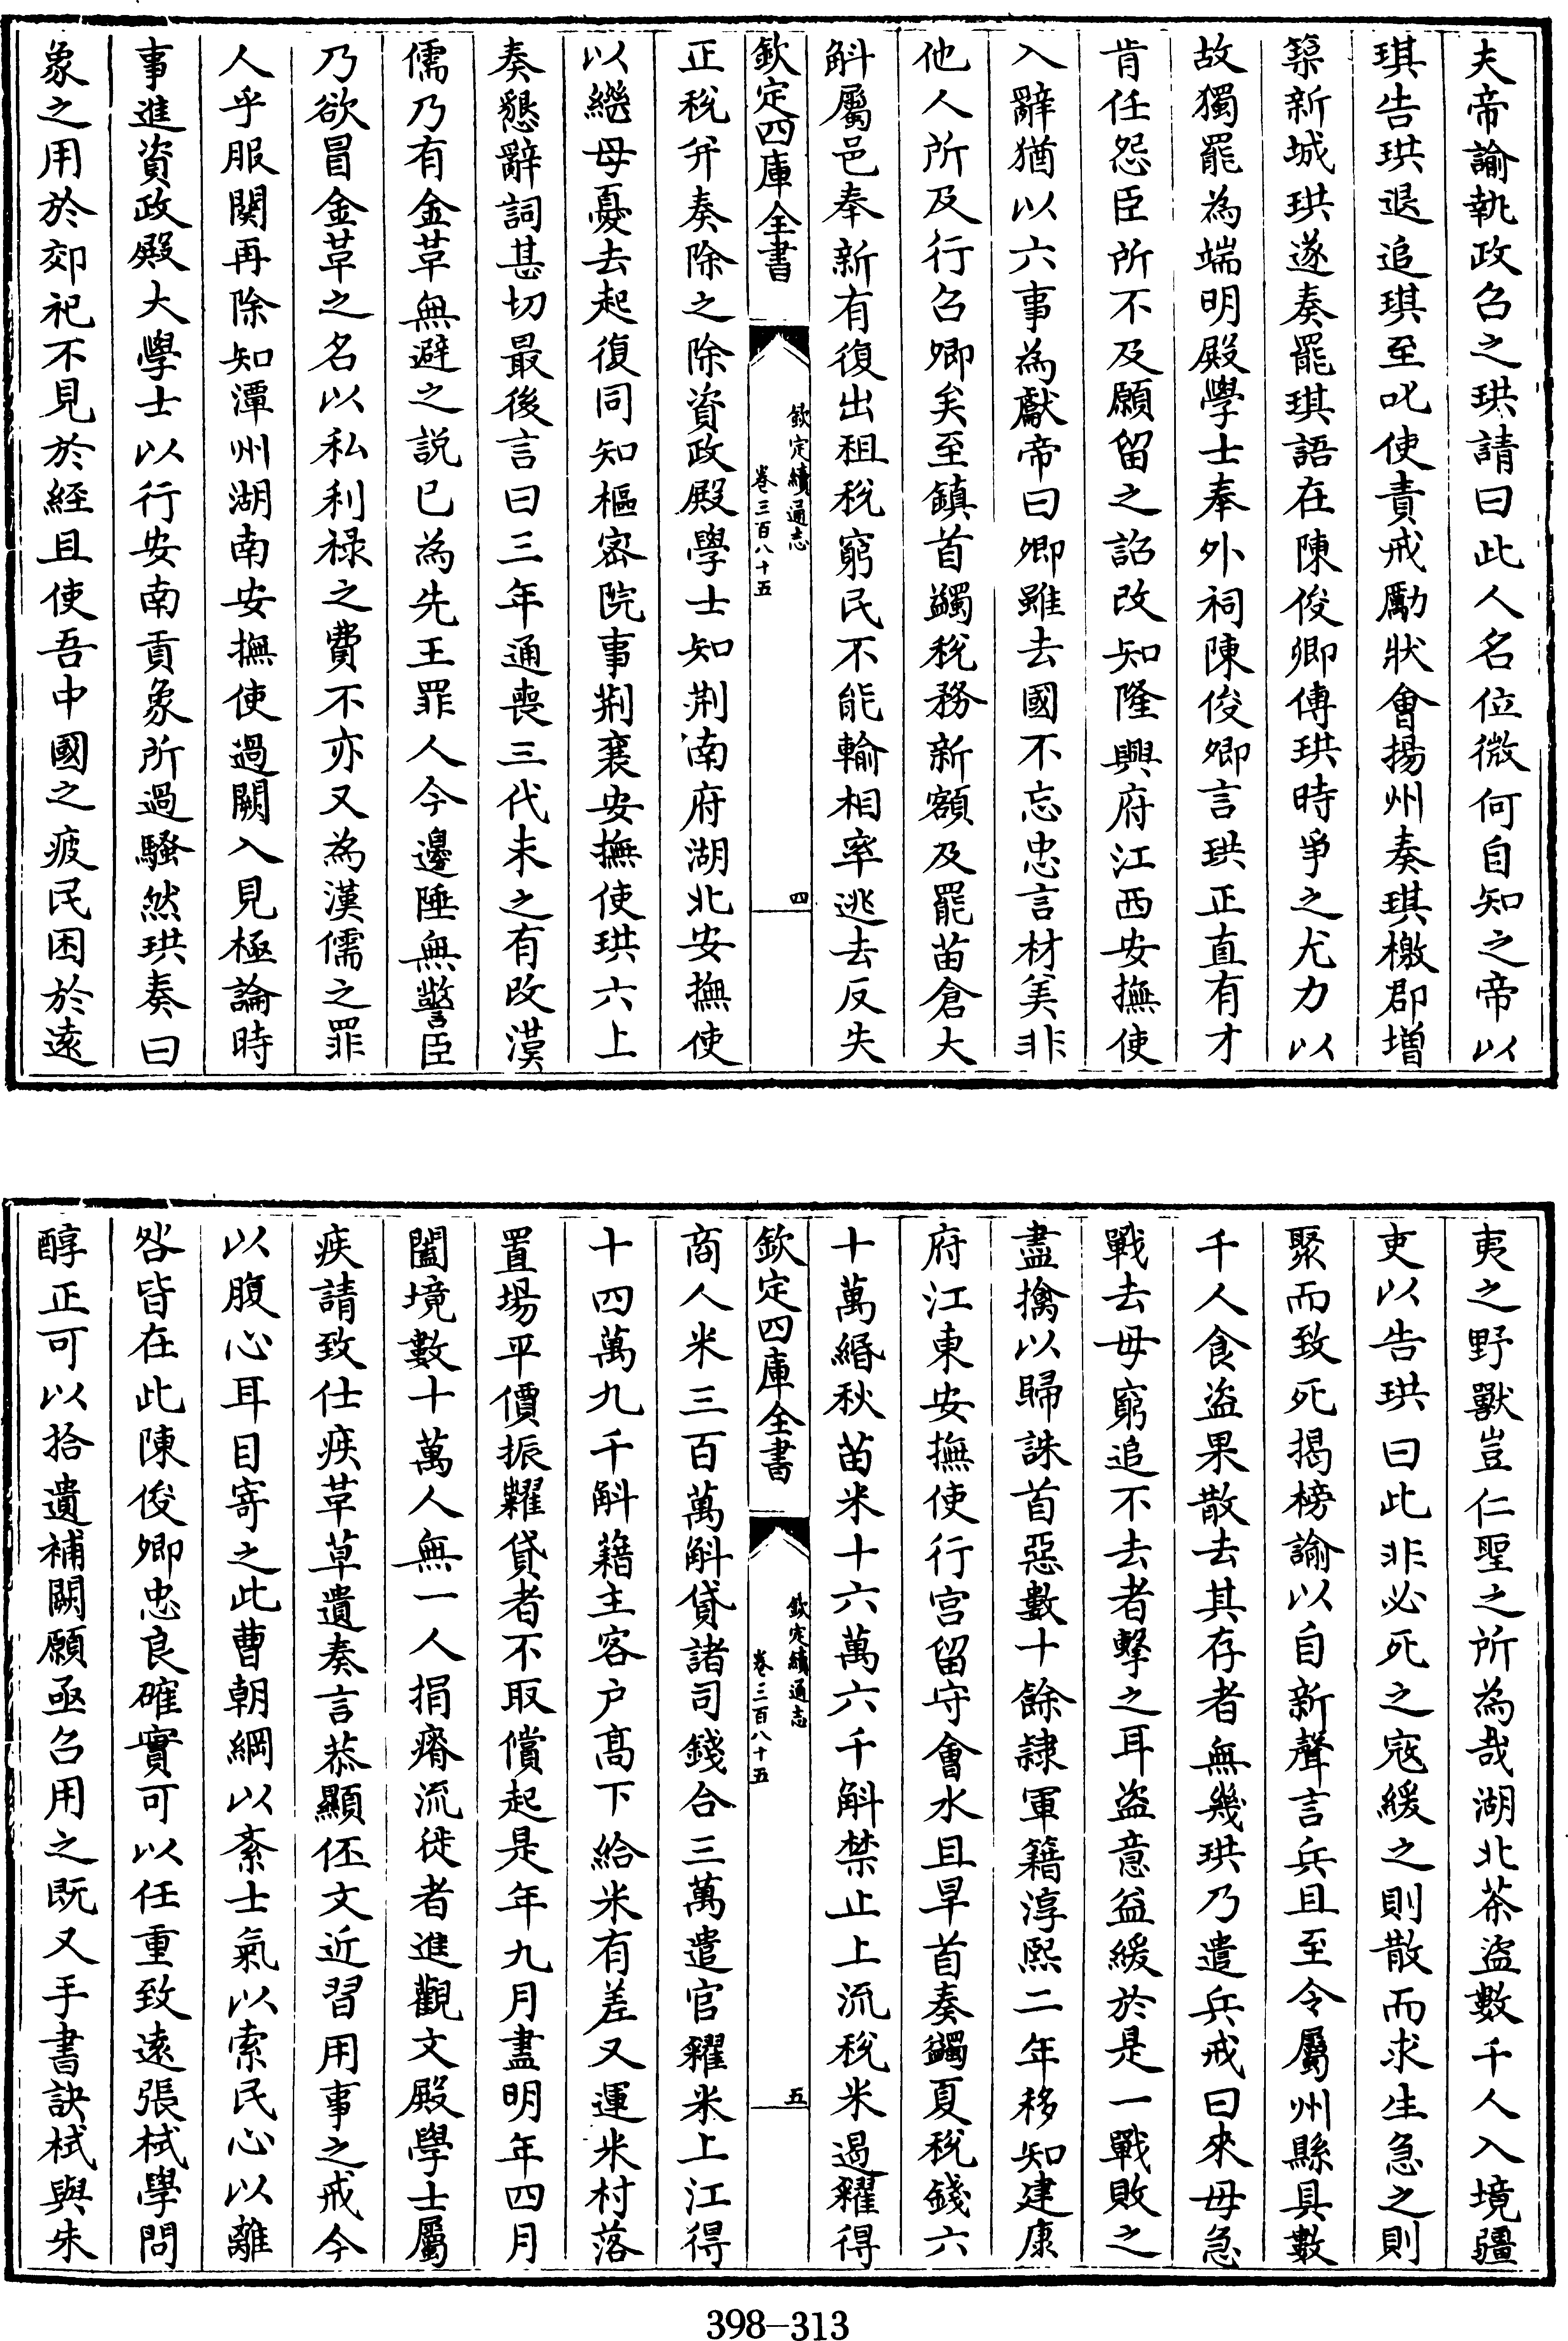 夫帝諭執政召之珙請曰此人名位微何自知之帝以
琪告珙退追琪至叱使責戒勵狀會揚州奏琪檄郡増
築新城珙遂奏罷琪語在陳俊卿傳珙時爭之尤力以
故獨罷為端明殿學士奉外祠陳俊卿言珙正直有才
肯任怨臣所不及願留之詔改知隆興府江西安撫使
入辭猶以六事為獻帝曰卿雖去國不忘忠言材美非
他人所及行召卿矣至鎮首蠲稅務新額及罷苗倉大
斛屬邑奉新有復出租稅窮民不能輸相率逃去反失
欽定四庫全書
欽定續通志
卷三百八十五
四
正稅并奏除之除資政殿學士知荆南府湖北安撫使
以繼母憂去起復同知樞密院事荆襄安撫使珙六上
奏懇辭詞甚切最後言曰三年通喪三代未之有改漢
儒乃有金革無避之説已為先王罪人今邊陲無警臣
乃欲冒金革之名以私利禄之費不亦又為漢儒之罪
人乎服闋再除知潭州湖南安撫使過闕入見極論時
事進資政殿大學士以行安南貢象所過騷然珙奏曰
象之用於郊祀不見於經且使吾中國之疲民困於遠
夷之野獸豈仁聖之所為哉湖北茶盜數千人入境疆
吏以告珙曰此非必死之寇緩之則散而求生急之則
聚而致死揭榜諭以自新聲言兵且至令屬州縣具數
千人食盜果散去其存者無幾珙乃遣兵戒曰來毋急
戰去毋窮追不去者擊之耳盜意益緩於是一戰敗之
盡擒以歸誅首惡數十餘隷軍籍淳熙二年移知建康
府江東安撫使行宮留守會水且旱首奏蠲夏稅錢六
十萬緡秋苗米十六萬六千斛禁止上流稅米遏糴得
欽定四庫全書
欽定續通志
卷三百八十五
五
商人米三百萬斛貸諸司錢合三萬遣官糴米上江得
十四萬九千斛籍主客户高下給米有差又運米村落
置場平價振糶貸者不取償起是年九月盡明年四月
闔境數十萬人無一人捐瘠流徙者進觀文殿學士屬
疾請致仕疾革草遺奏言恭顯伾文近習用事之戒今
以腹心耳目寄之此曹朝綱以紊士氣以索民心以離
咎皆在此陳俊卿忠良確實可以任重致遠張栻學問
醇正可以拾遺補闕願亟召用之既又手書訣栻與朱
398-313